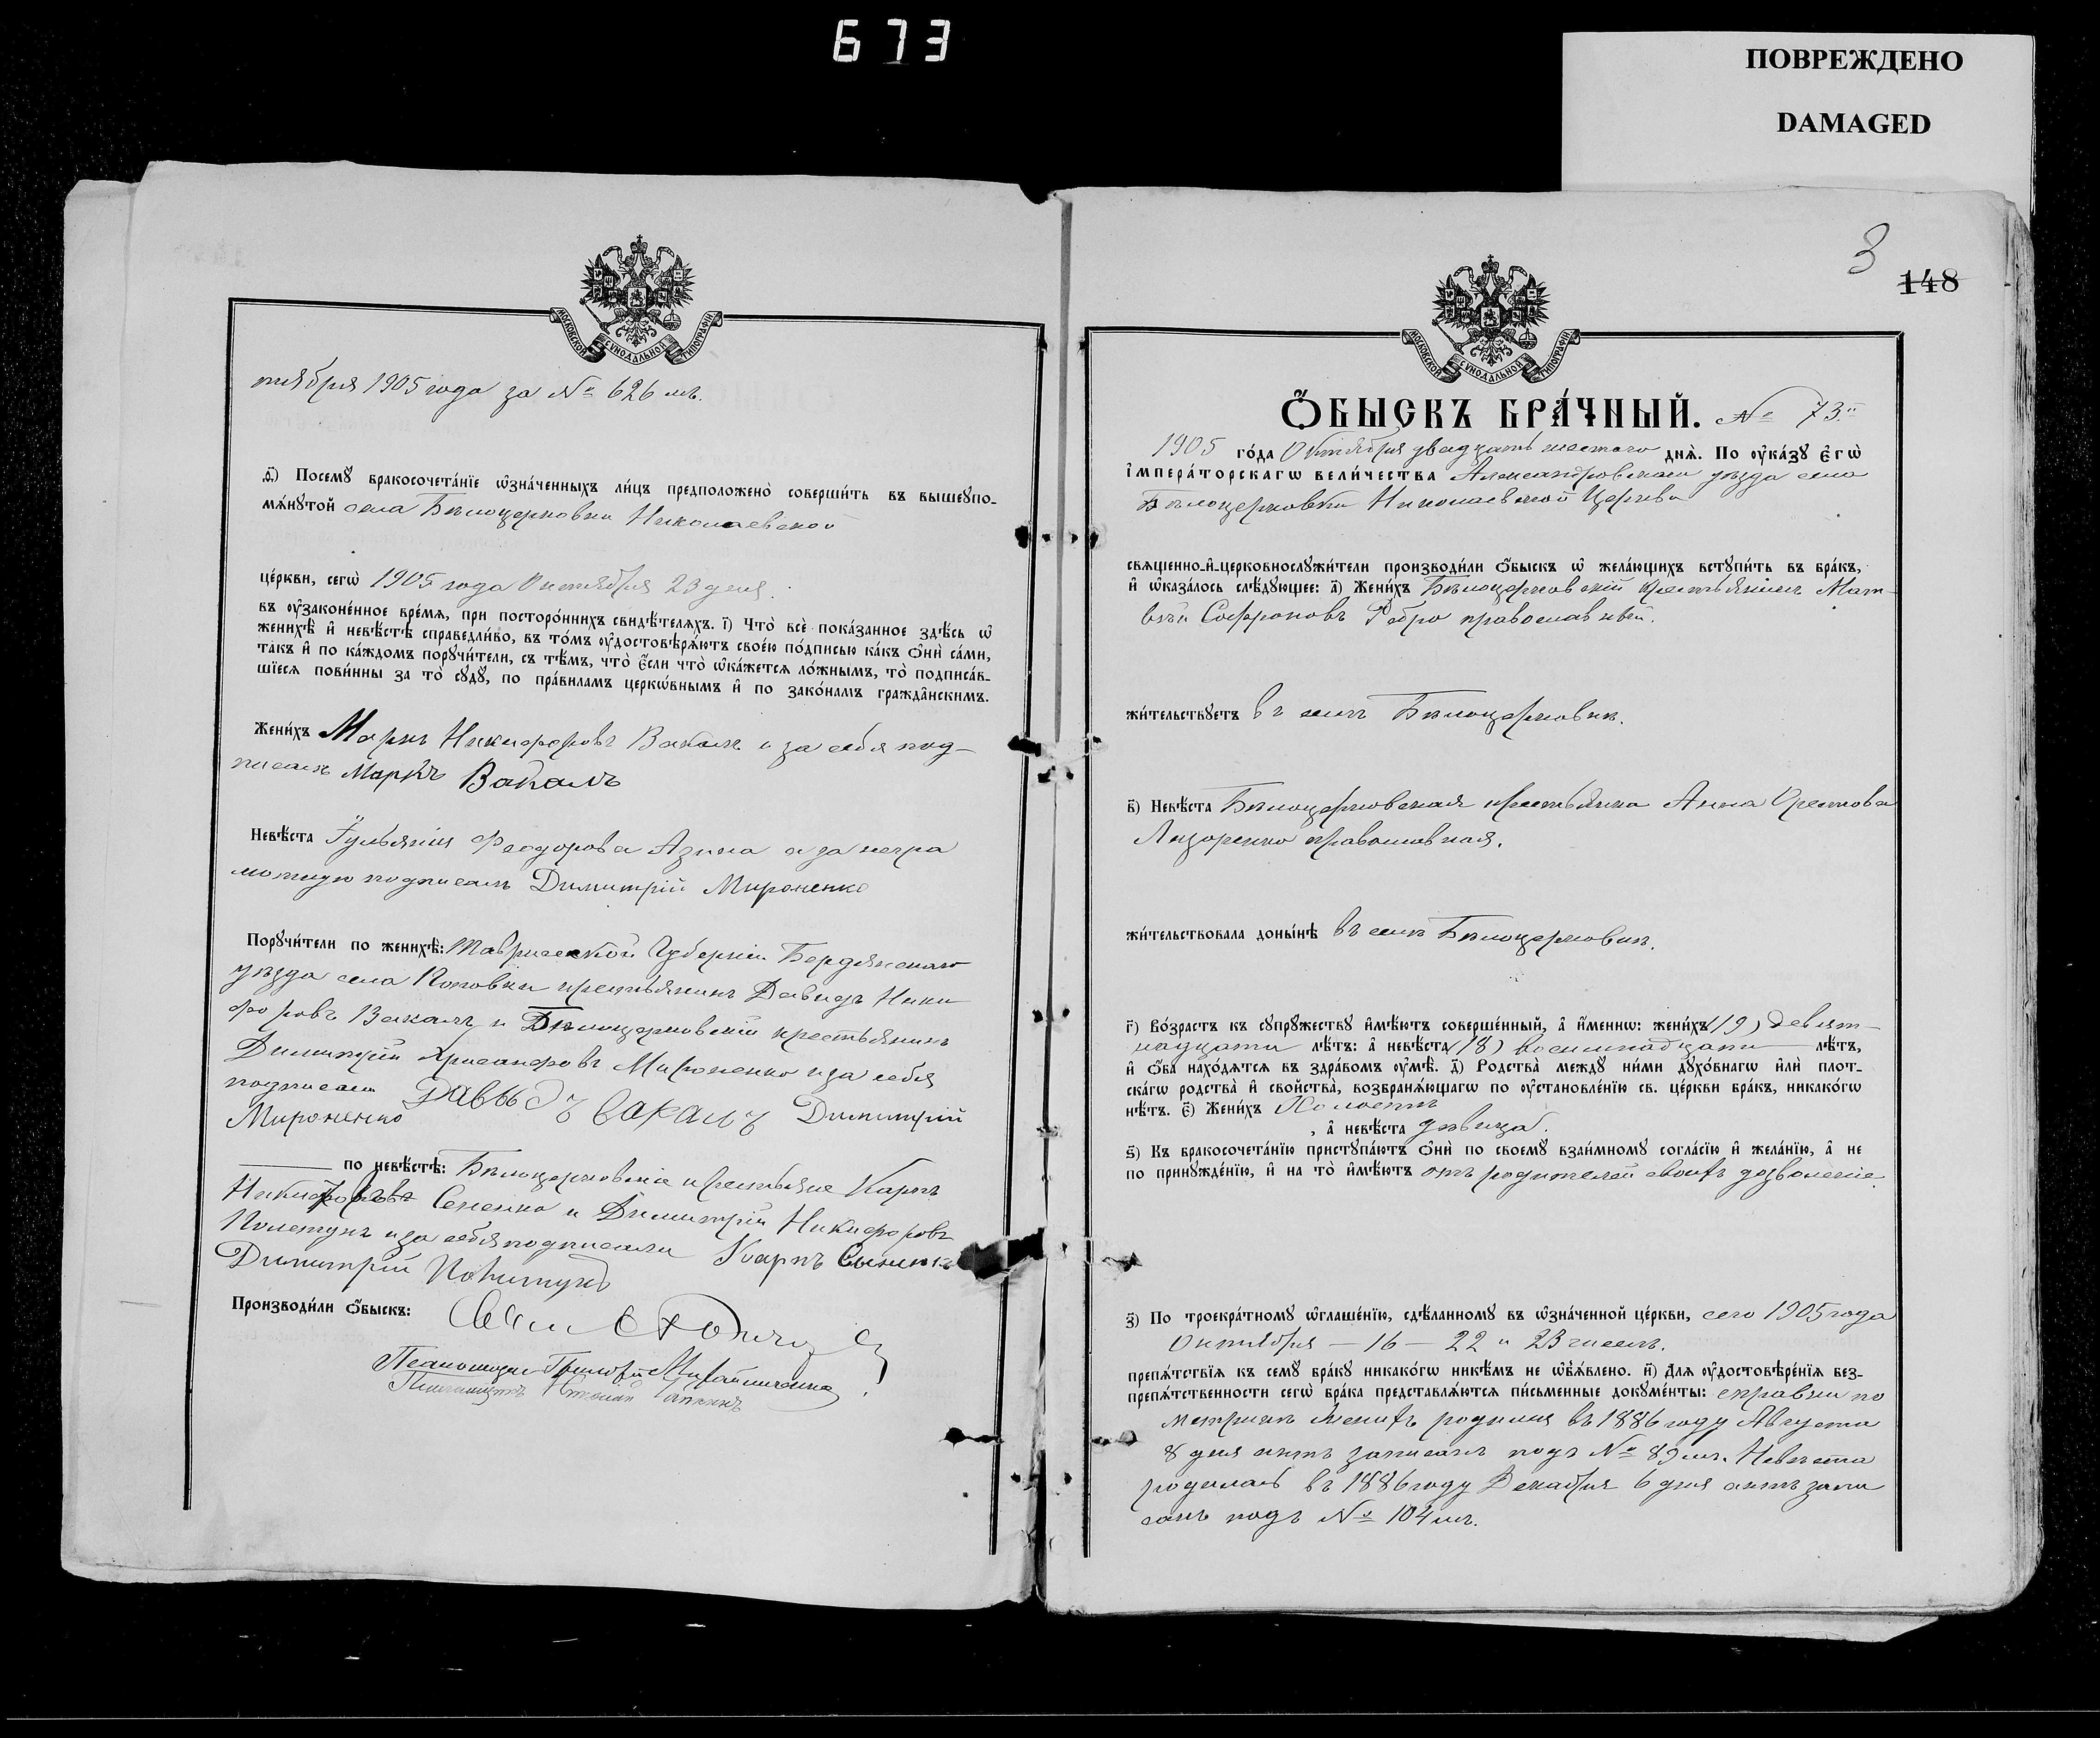 673
ПОВРЕЖДЕНО
DAMAGED
МОСКОВСКОЙ СУНОДАЛЬНОЙ ТИПОГРАФІИ
тября 1905 года за № 626 мъ.
д҃.) Посемꙋ бракосочета́нїе ѡ҆зна́ченныхъ ли́цъ предположено̀ соверши́ть въ вышеꙋпо-
мѧ́нꙋтой села Бѣлоцерковки Николаевской
це́ркви, сегѡ̀ 1905 года Октября 23 дня.
въ ᲂу҆законе́нное вре́мѧ, при посторо́ннихъ свидѣ́телѧхъ. і҃) Что̀ всѐ пока́занное здѣ́сь ѡ҆
женихѣ̀ и҆ невѣ́стѣ справедли́во, въ то́мъ ᲂу҆достовѣрѧ́ютъ свое́ю по́дписью ка́къ ѻ҆нѝ са́ми,
та́къ и҆ по ка́ждомъ порꙋчи́тели, съ тѣ́мъ, что̀ є҆́сли что̀ ѡ҆ка́жетсѧ ло́жнымъ, то̀ подписа́в-
шїесѧ пови́нны за то̀ сꙋдꙋ̀, по пра́виламъ церкѡ́внымъ и҆ по зако́намъ гражда̂нскимъ.
Жени́хъ Маркъ Никифоровъ Вакалъ и за себя под-
писалъ Маркъ Вакалъ
Невѣ́ста Іульянія Феодорова Азина а за негра
мотную подписалъ Димитрій Мироненко
Порꙋчи́тели по женихѣ̀: Таврической Губерніи Бердянскаго
уѣзда села Поповки крестьянинъ Давидъ Ники
форовъ Вакалъ и Бѣлоцерковскій крестьянинъ
Димитрій Хрисанфовъ Мироненко и за себя
подписали Давыдъ Вакалъ Димитрій
Мироненко
по невѣ́стѣ: Бѣлоцерковскіе крестьяне Карпъ
Никифоровъ Сененко и Димитрій Никифоровъ
Полетунъ и за себя подписали Карпъ
Димитрій
Производи́ли ѻ҆́быскъ:
Псаломщикъ Григорій
3
148
МОСКОВСКОЙ СУНОДАЛЬНОЙ ТИПОГРАФІИ
Ѻ҆́БЫСКЪ БРА́ЧНЫЙ. № 73.й
1905 го́да Октября двадцать шестого днѧ̀. По ᲂу҆ка́зꙋ є҆гѡ̀
і҆мпера́торскагѡ вели́чества Александровскаго уѣзда села
Бѣлоцерковки Николаевской Церкви
свѧщенно-и҆-церковнослꙋжи́тели производи́ли ѻ҆́быскъ ѡ҆ жела́ющихъ встꙋпи́ть въ бра́къ,
и҆ ѡ҆каза́лось слѣ́дꙋющее: а҃) Жени́хъ Бѣлоцерковскій крестьянинъ Мат-
вѣй Софроновъ Ребро православный.
жи́тельствꙋетъ въ селѣ Бѣлоцерковкѣ.
в҃) Невѣ́ста Бѣлоцерковская крестьянка Анна Орестова
Лазоренко православная.
жи́тельствовала доны́нѣ въ селѣ Бѣлоцерковкѣ.
г҃) Во́зрастъ къ сꙋпрꙋ́жествꙋ и҆мѣ́ютъ соверше́нный, а҆ и҆́меннѡ: жени́хъ (19) девят-
надцати лѣ́тъ: а҆ невѣ́ста (18) восемнадцати лѣ́тъ,
и҆ ѻ҆́ба нахо́дѧтсѧ въ здра́вомъ ᲂу҆мѣ̀. д҃) Родства̀ междꙋ̀ ни́ми дꙋхо́внагѡ и҆лѝ плот-
ска́гѡ родства̀ и҆ сво́йства̀, возбранѧ́ющагѡ по ᲂу҆становле́нїю св. це́ркви бра́къ, никако́гѡ
нѣ́тъ. є҃) Жени́хъ Холостъ
, а҆ невѣ́ста дѣвица.
ѕ҃) Къ бракосочета́нїю пристꙋпа́ютъ ѻ҆нѝ по своемꙋ̀ взаи́мномꙋ согла́сїю и҆ жела́нїю, а҆ не
по принꙋжде́нїю, и҆ на то̀ и҆мѣ́ютъ отъ родителей своихъ дозволеніе
з҃) По троекра́тномꙋ ѡ҆глаше́нїю, сдѣ́ланномꙋ въ ѡ҆зна́ченной це́ркви, сего 1905 года
Октября — 16 — 22 и 23 числъ.
препѧ́тствїѧ къ семꙋ̀ бра́кꙋ никако́гѡ никѣ́мъ не ѡ҆б̾ѧ́влено. и҃) Для ᲂу҆достовѣре́нїѧ без-
препѧ́тственности сегѡ̀ бра́ка представлѧ́ютсѧ пи́сьменные докꙋме́нты: справки по
метрикѣ Женихъ родился въ 1886 году Августа
8 дня актъ записанъ подъ № 89 мъ. Невѣста
родилась въ 1886 году Декабря 6 дня актъ запи
санъ подъ № 104 мъ.